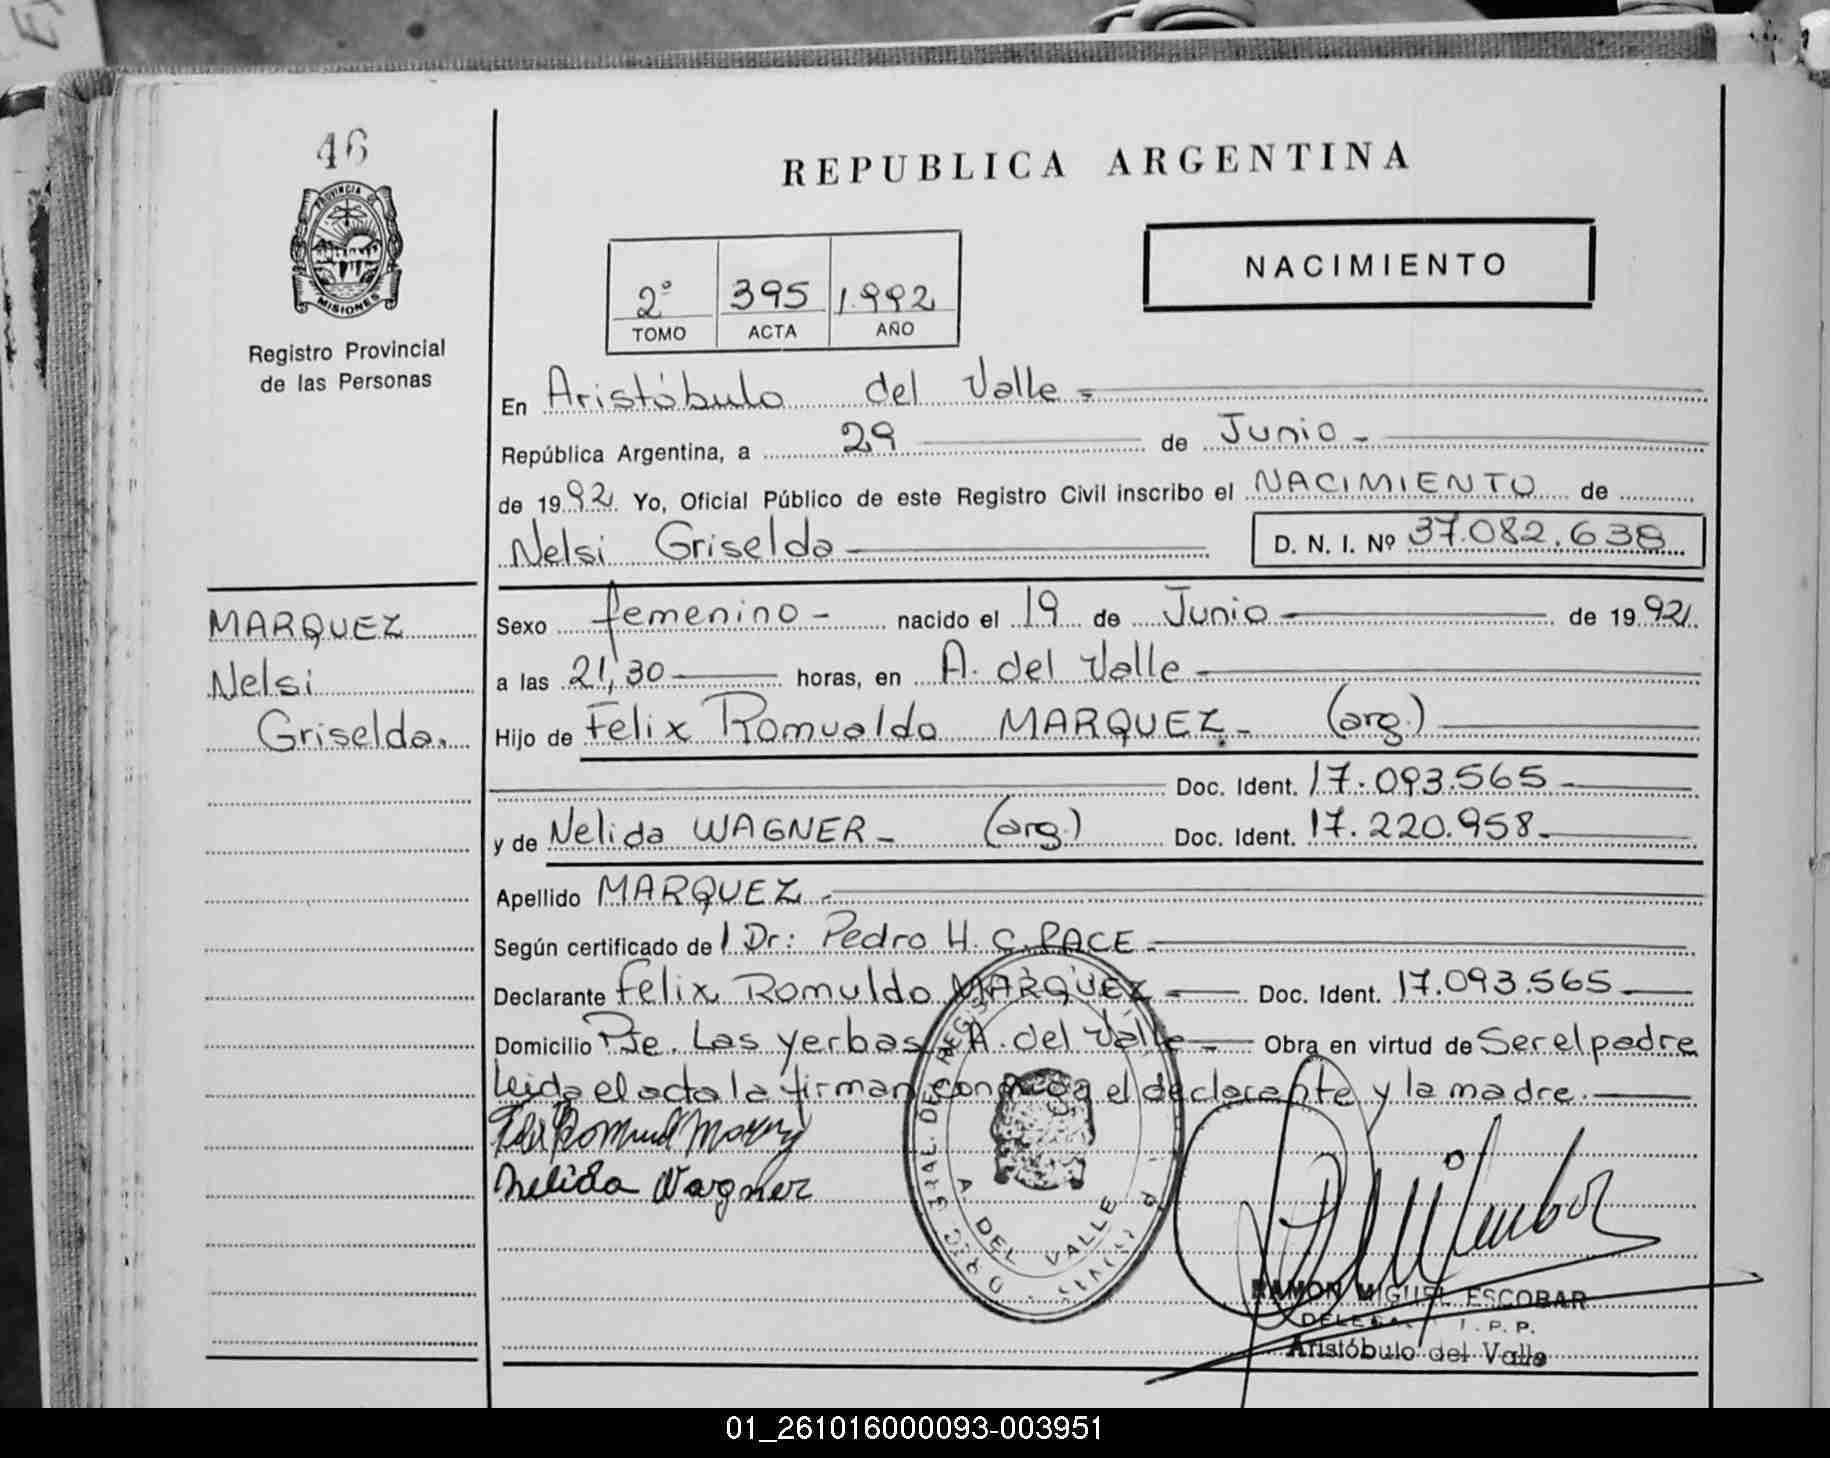 46
PROVINCIA DE
MISIONES
Registro Provincial
de las Personas
REPUBLICA ARGENTINA
NACIMIENTO
2° 395 1.992
TOMO ACTA AÑO
En Aristóbulo del Valle =
República Argentina, a 29 de Junio -
de 1992. Yo, Oficial Público de este Registro Civil inscribo el NACIMIENTO de
Nelsi Griselda D. N. I. Nº 37.082.638
MARQUEZ
Nelsi
Griselda.
Sexo femenino - nacido el 19 de Junio de 1992.
a las 21,30 horas, en A. del Valle
Hijo de Felix Romualdo MARQUEZ.- (arg.)
Doc. Ident. 17.093.565
y de Nelida WAGNER - (arg.) Doc. Ident. 17.220.958.
Apellido MARQUEZ.
Según certificado de l Dr: Pedro H. C. PACE
Declarante Felix Romuldo MARQUEZ Doc. Ident. 17.093.565
Domicilio Pje. Las yerbas A. del Valle Obra en virtud de Ser el padre
Leida el acta la firman conmigo el declarante y la madre.
Nelida Wagner
A DEL VALLE
RAMON MIGUEL ESCOBAR
Aristóbulo del Valle
01_261016000093-003951